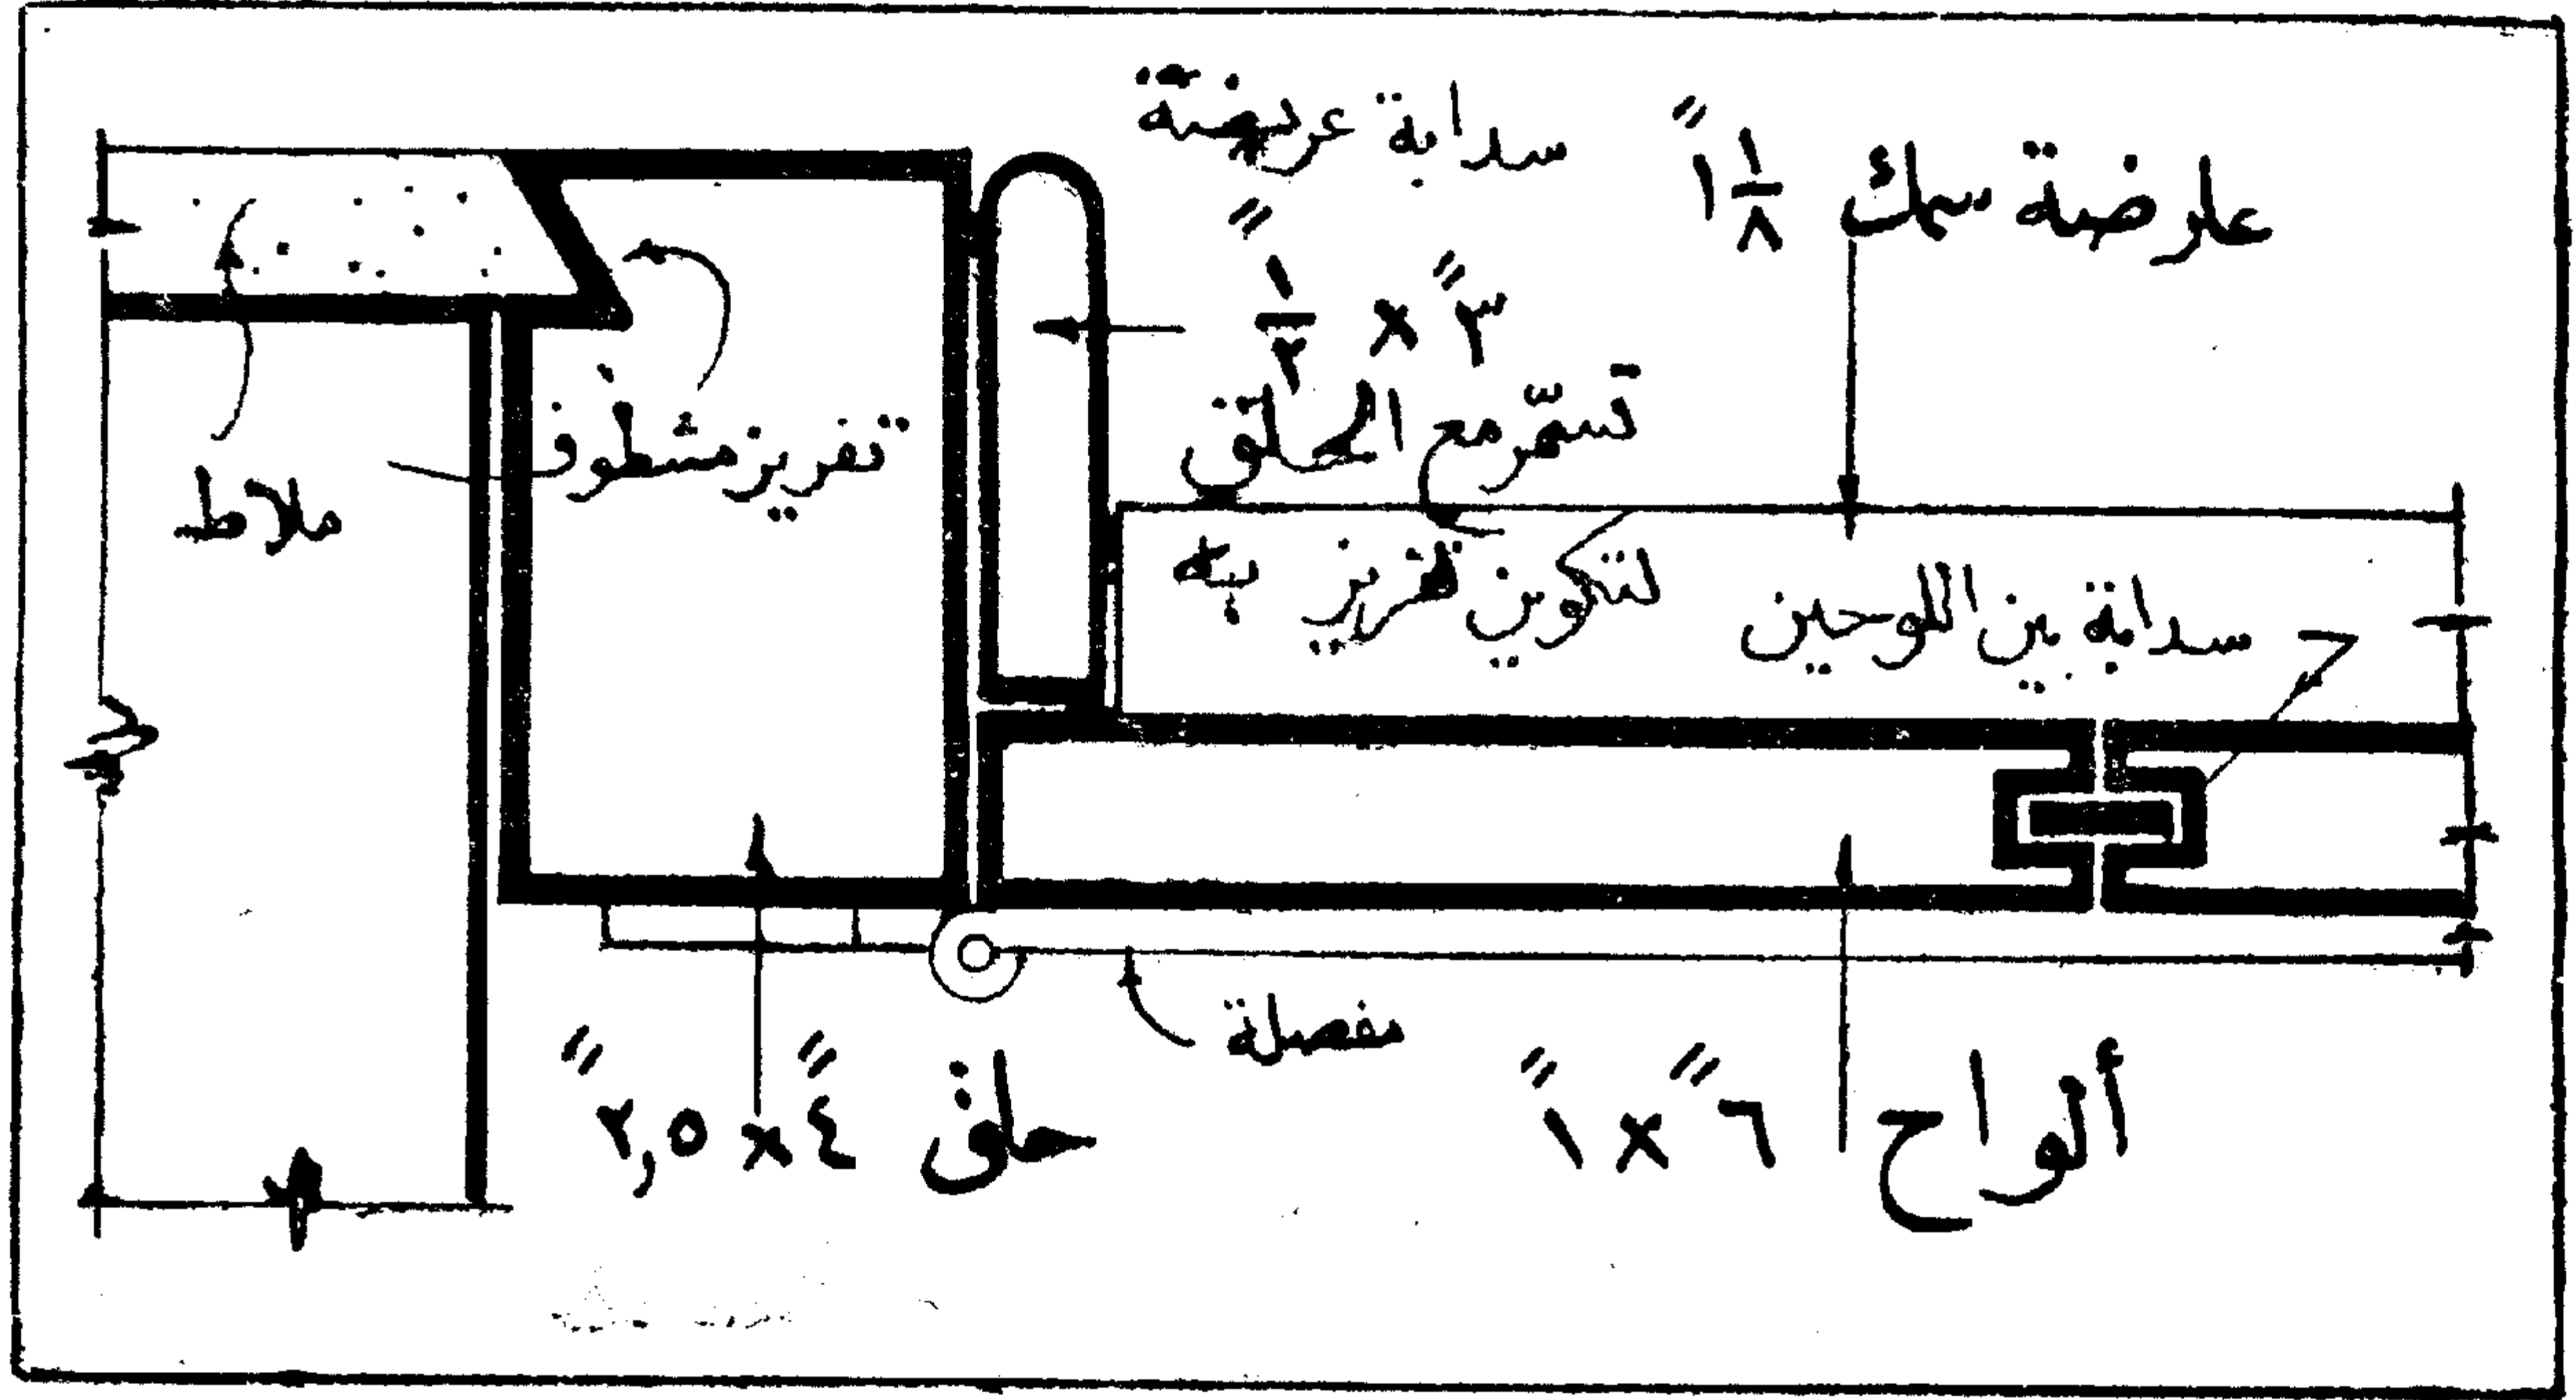 عارضة سمك ١ ١/٨"
سدابة عريضة
٣" × ١/٢"
تسمّر مع الحلق
لتكوين تفريز به
سدابة بين اللوحين
تفريز مشطوف
ملاط
مفصلة
ألواح ٦" × ١"
حلق ٤" × ٢,٥"